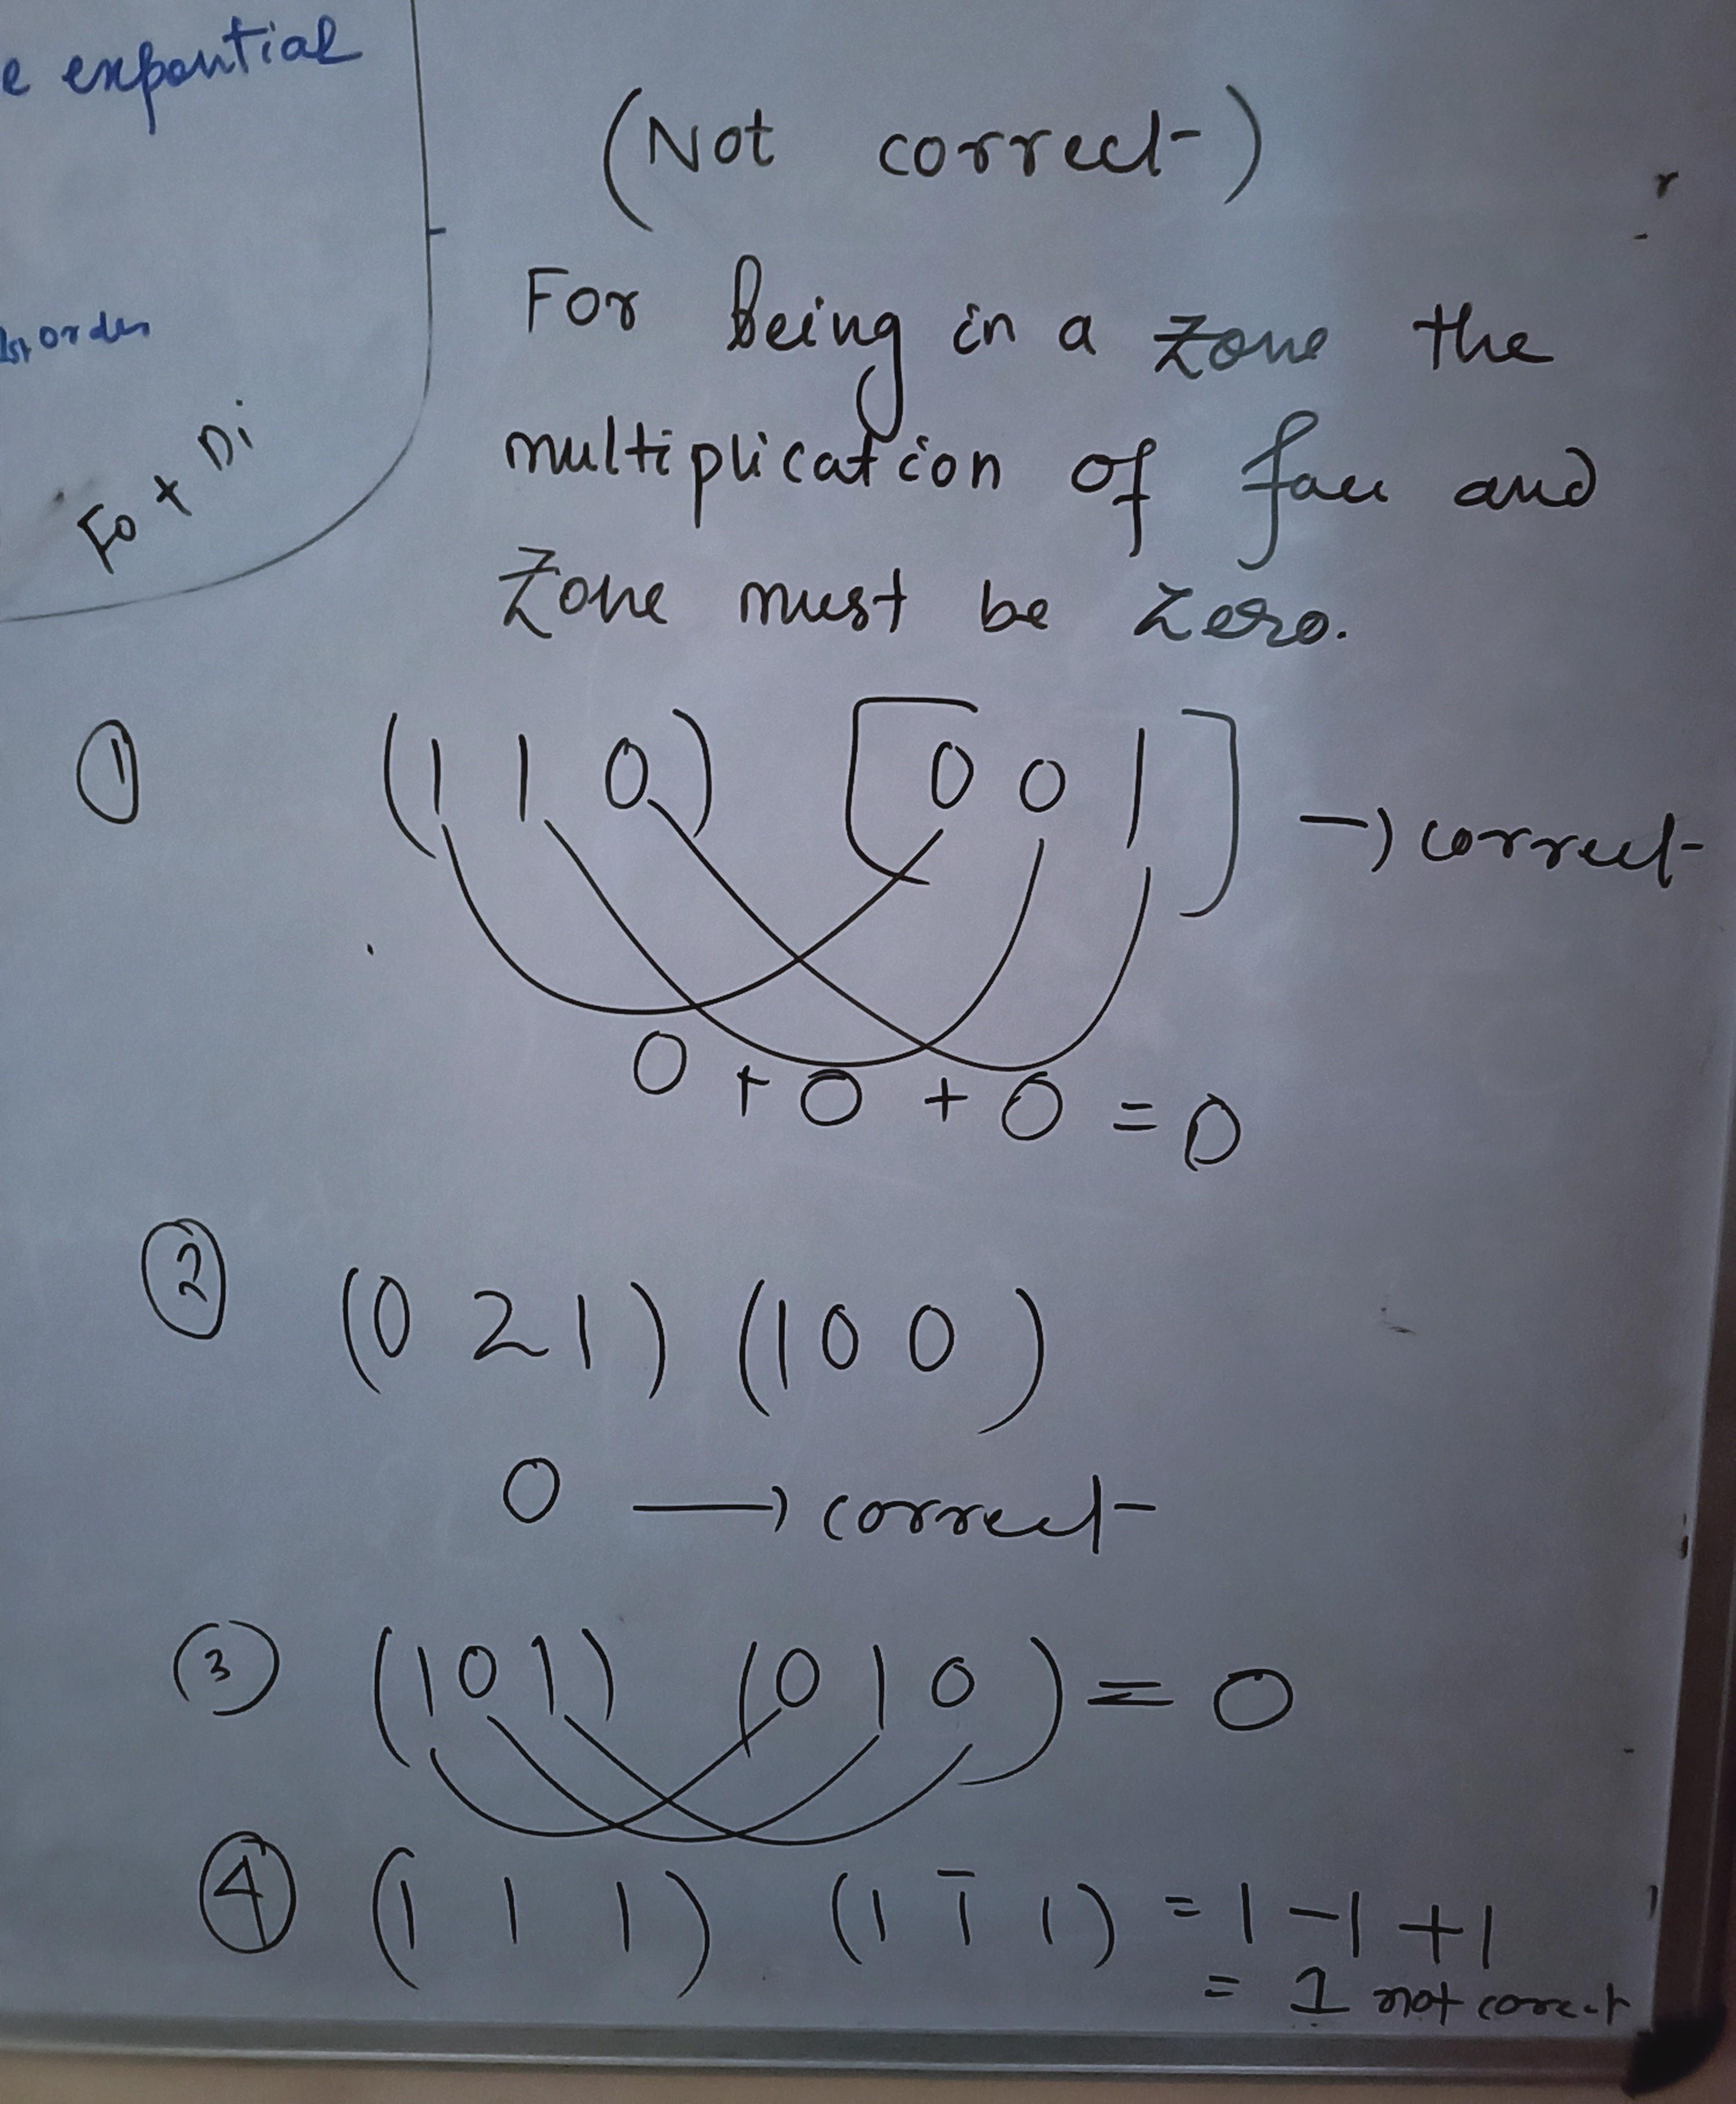 e expontial
1st order
Fo + Di
(Not correct)
For being in a zone the
multiplication of face and
zone must be zero.
① (1 1 0) [0 0 1] → correct
0 + 0 + 0 = 0
② (0 2 1) (1 0 0)
0 → correct
③ (1 0 1) (0 1 0) = 0
④ (1 1 1) (1 1̄ 1) = 1 - 1 + 1
= 1 not correct